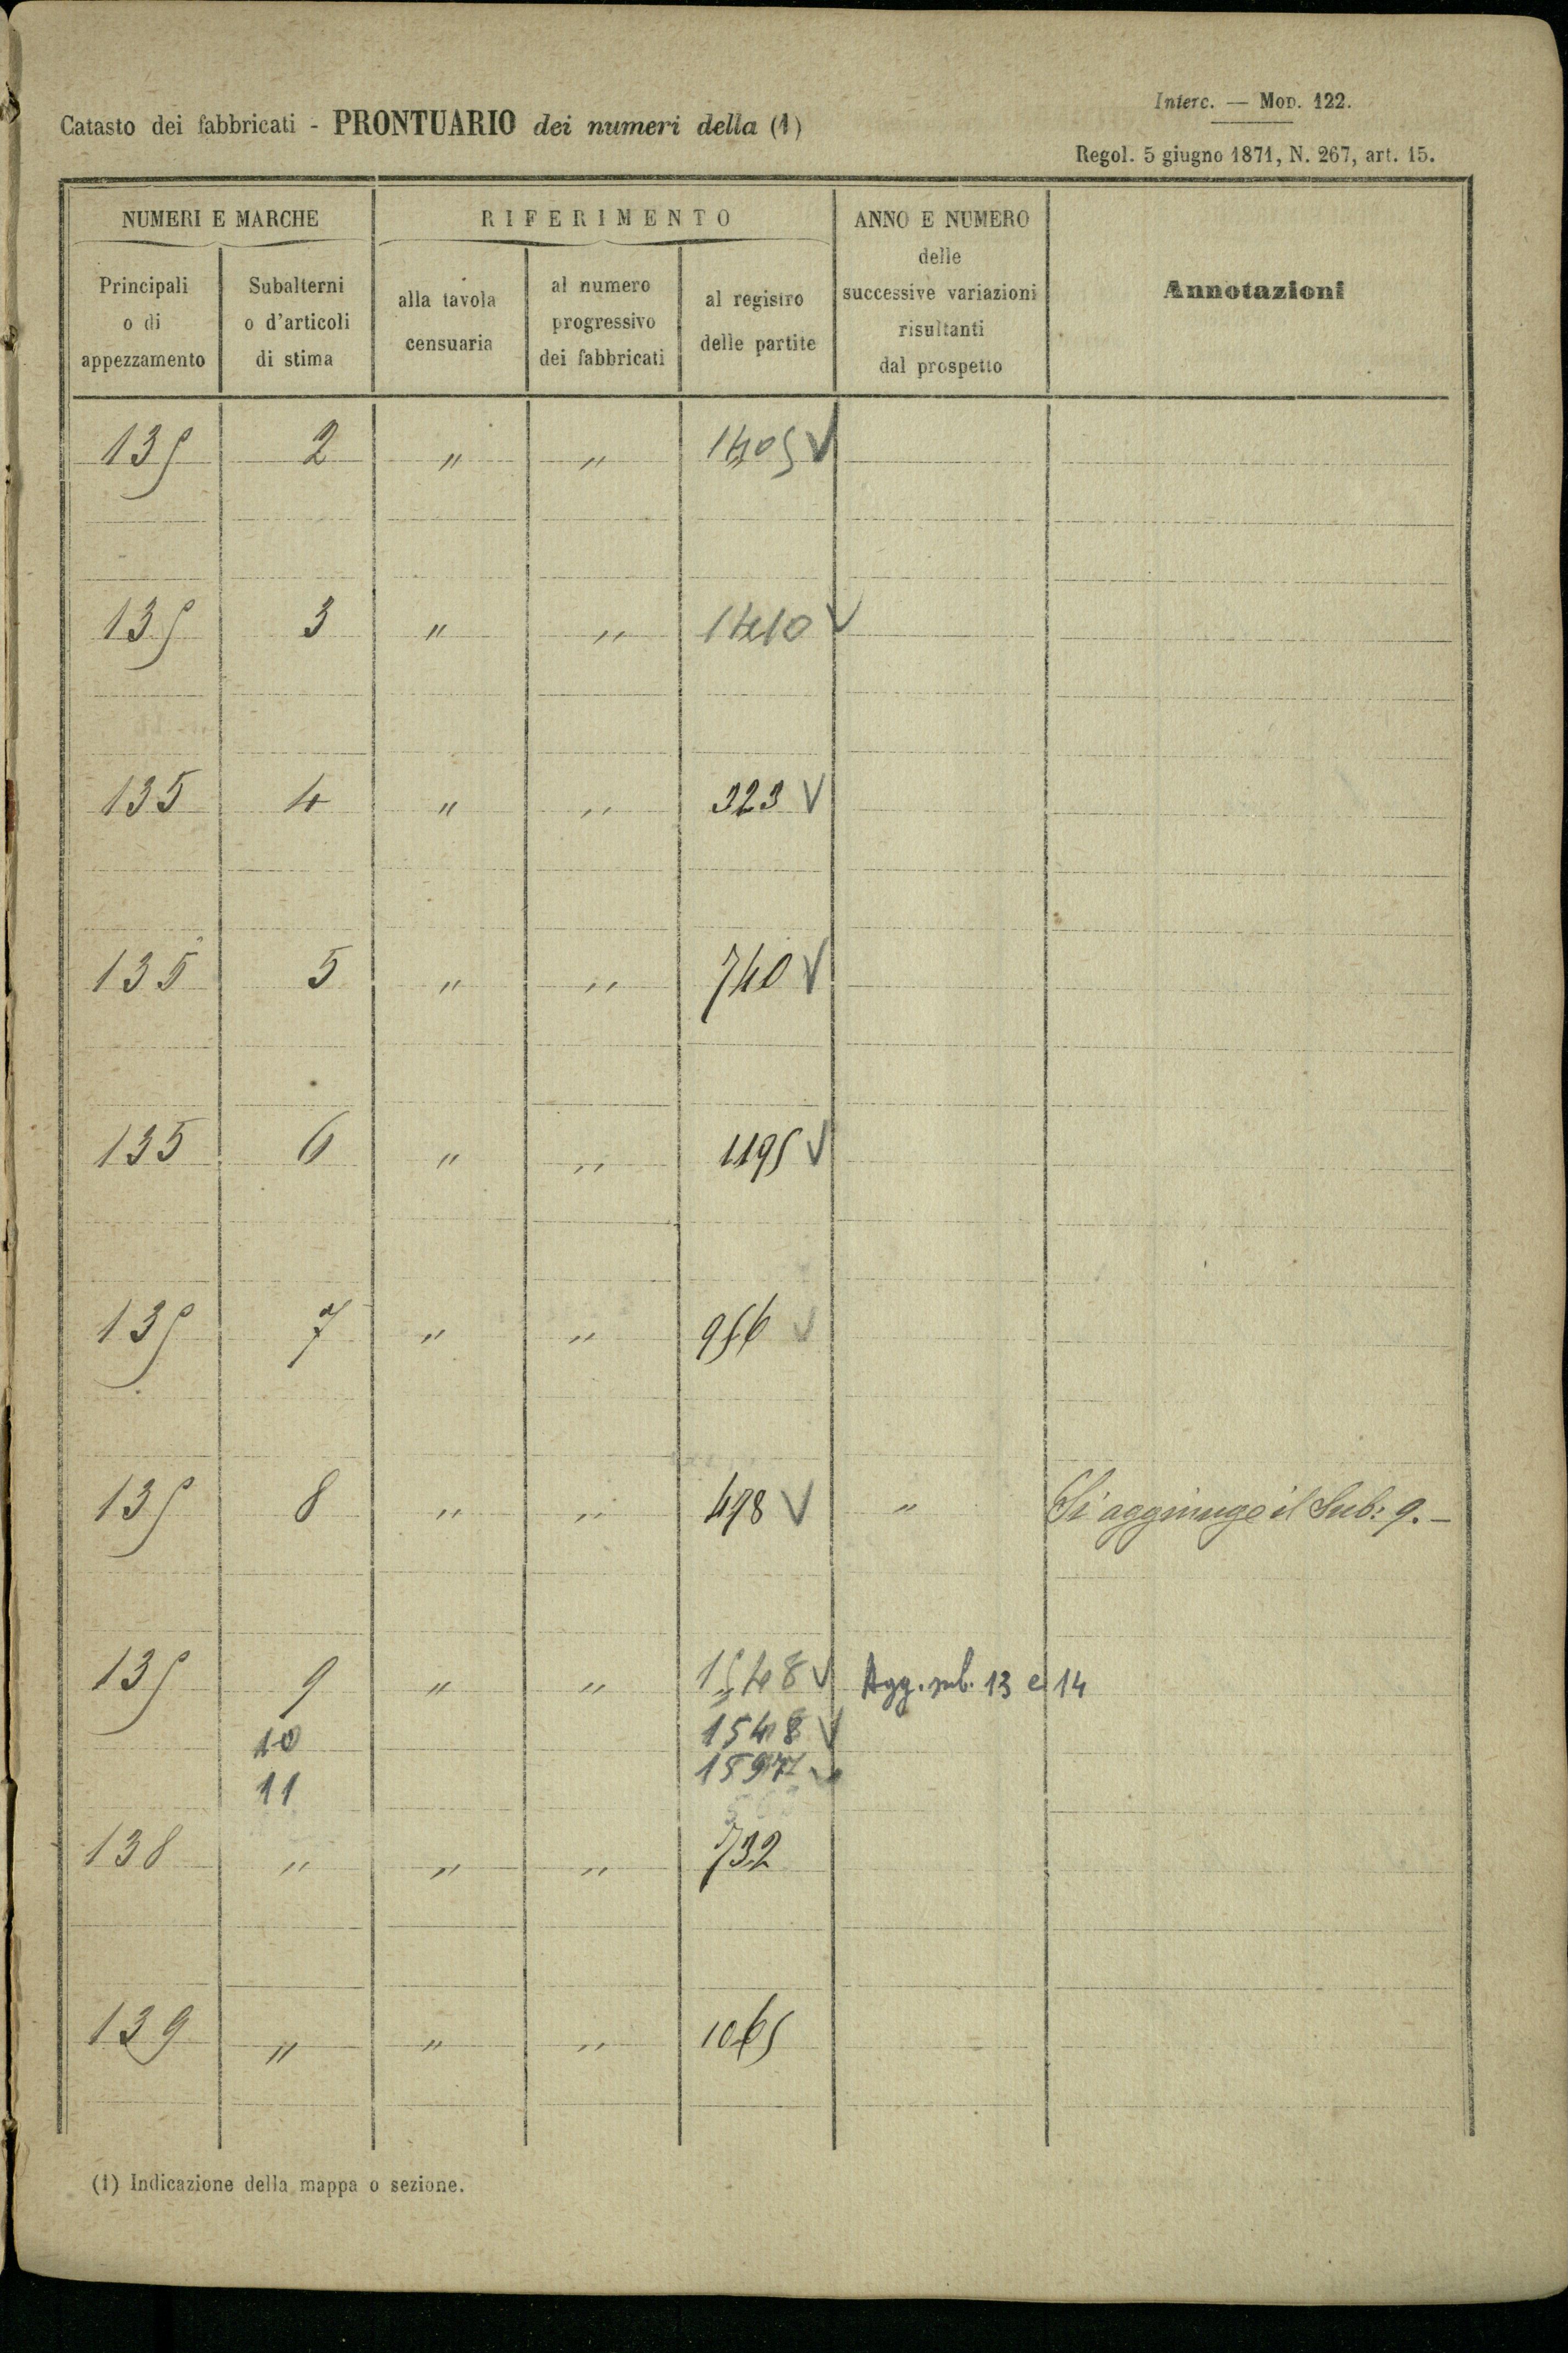 Interc. — Mod. 122.
Catasto dei fabbricati - PRONTUARIO dei numeri della (1)
Regol. 5 giugno 1871, N. 267, art. 15.
NUMERI E MARCHE RIFERIMENTO ANNO E NUMERO delle successive variazioni risultanti dal prospetto Annotazioni
Principali o di appezzamento Subalterni o d'articoli di stima alla tavola censuaria al numero progressivo dei fabbricati al registro delle partite
135 2 " " 1405 V
135 3 " " 1410 V
135 4 " " 323 V
135 5 " " 740 V
135 6 " " 1195 V
135 7 " " 956 V
135 8 " " 498 V " Si aggiunge il Sub: 9. —
135 9 " " 1548 V Agg. sub. 13 e 14
10 1548 V
11 1597 V
138 " " " 732
139 " " " 1065
(1) Indicazione della mappa o sezione.